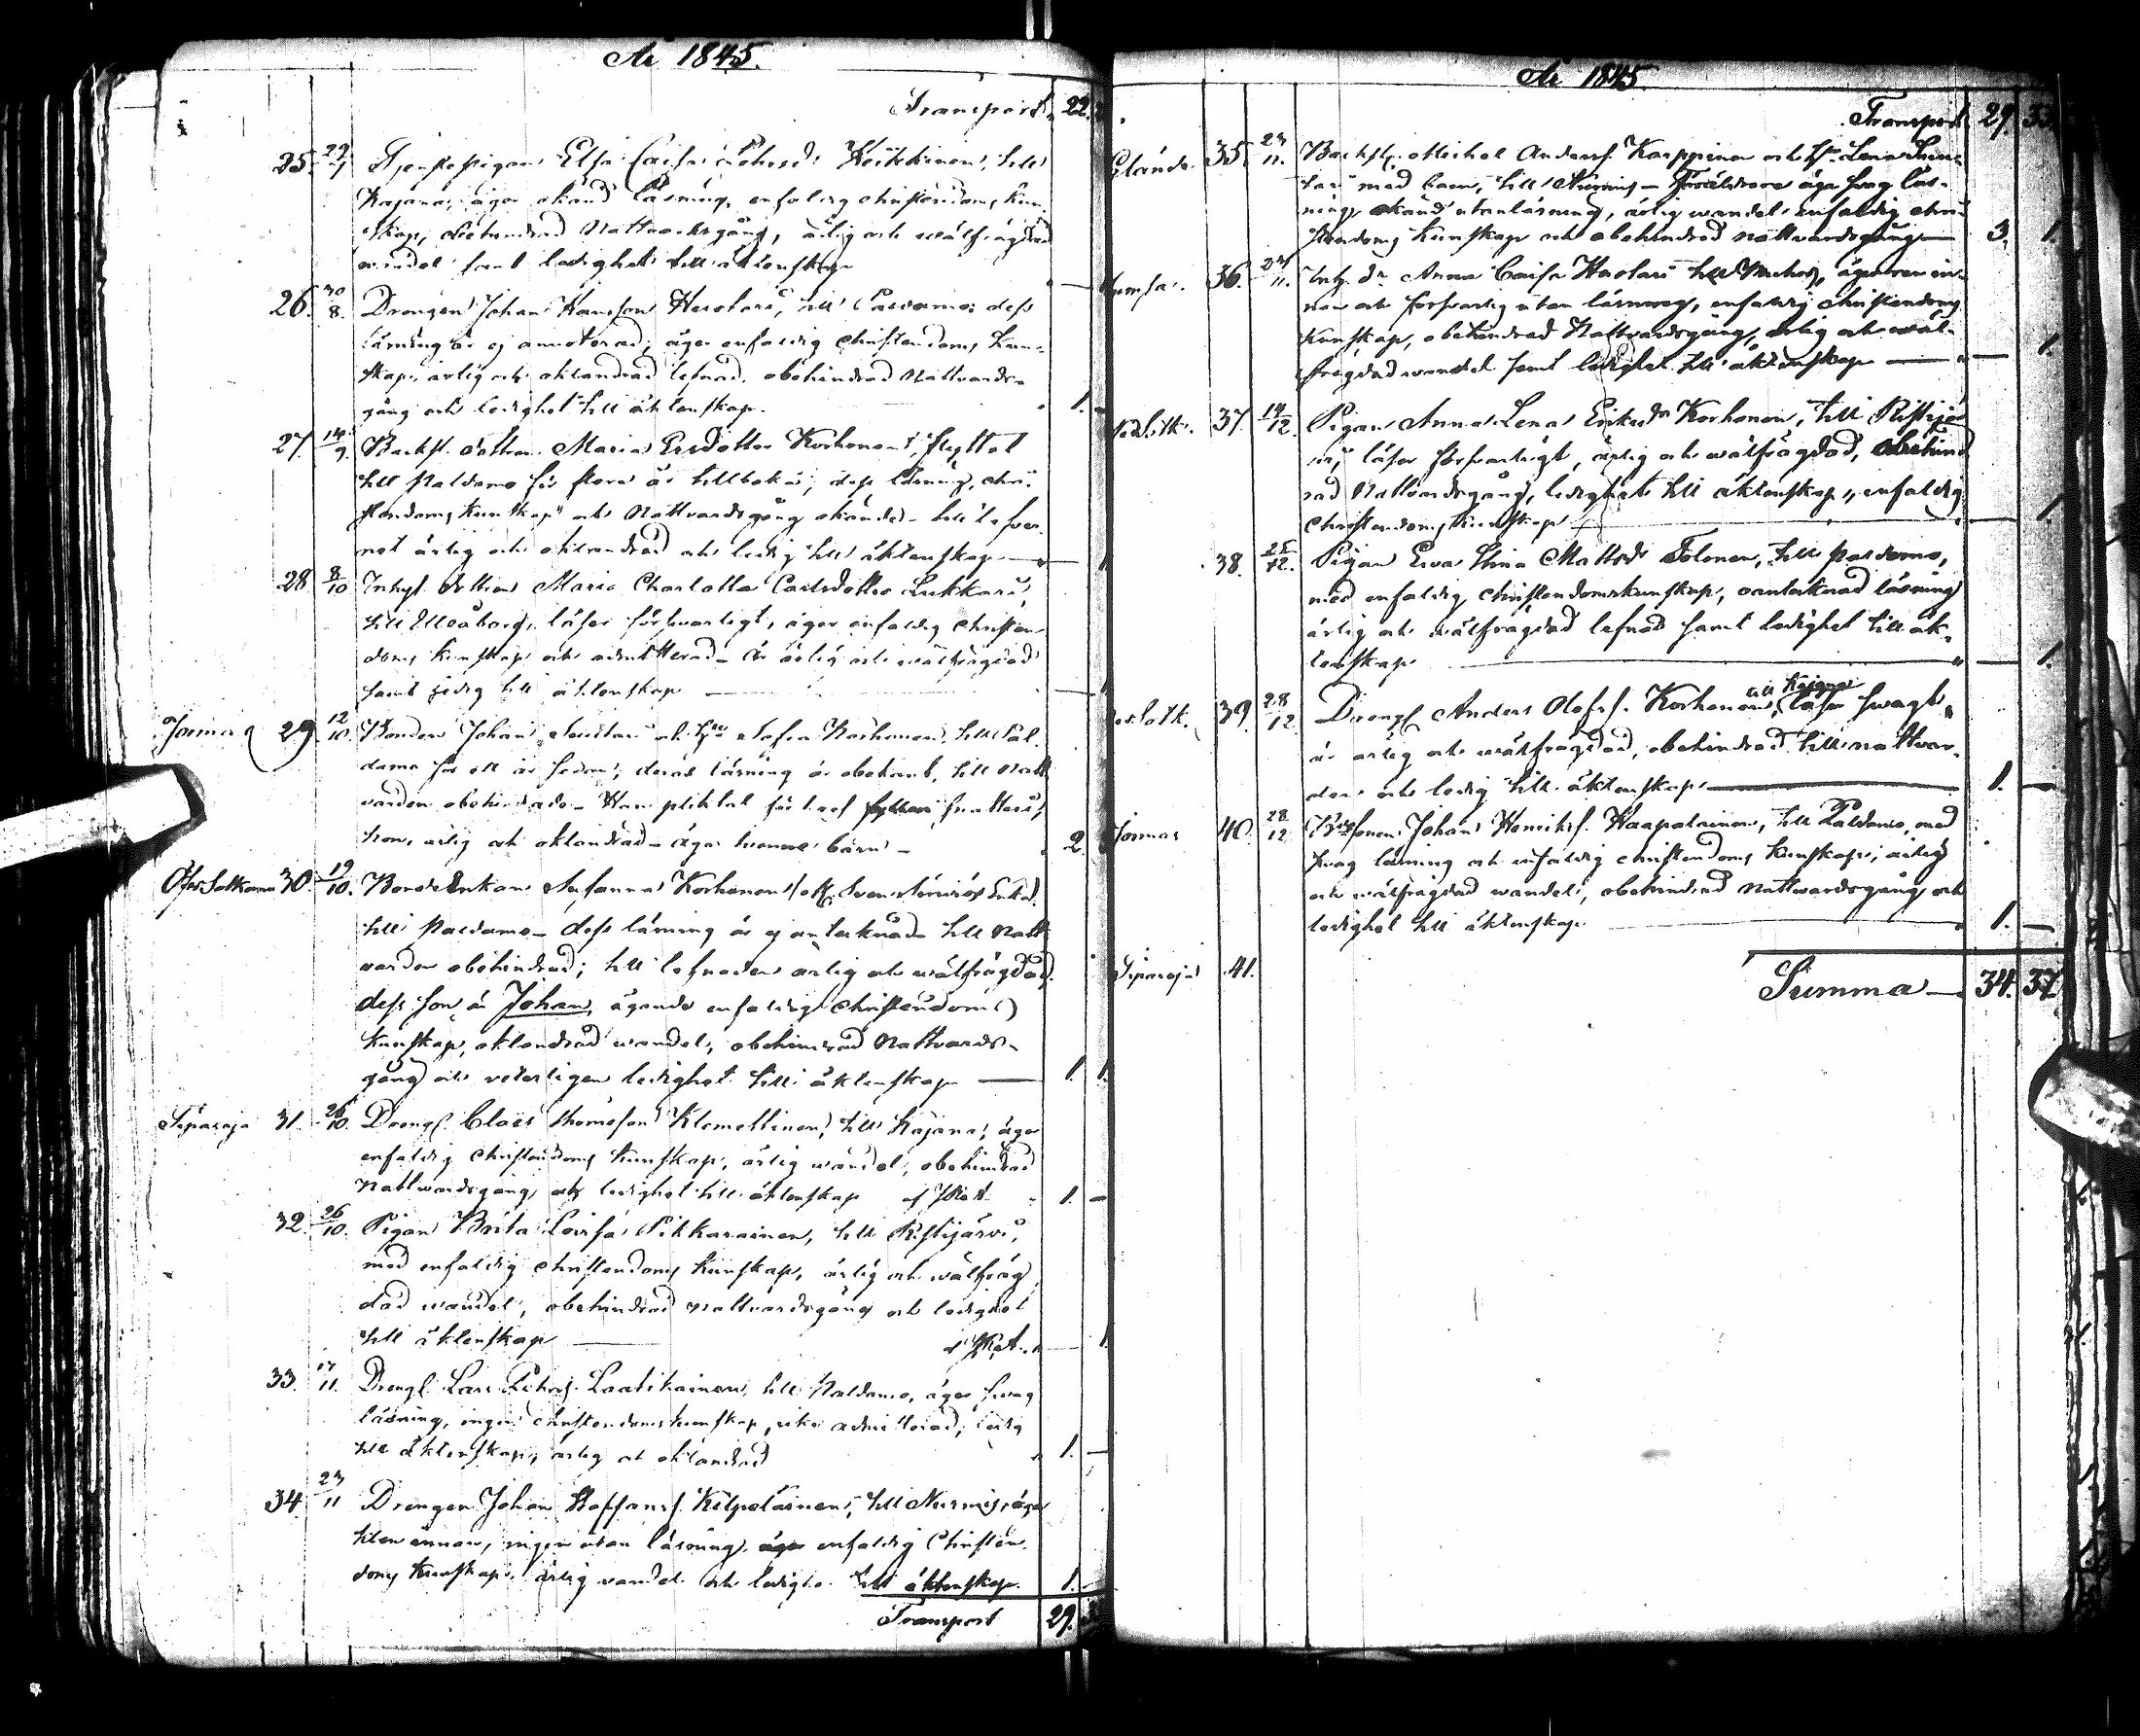 År 1845.
Transport 22.
25. 22/7 Tjenstepigan Elsa Caisa Pehrsd: Keikkinen, till
Kajana, äger okänd läsning, enfaldig christendoms kun-
skap, obehindrad Nattvardsgång, ärlig och wälfrägdad
wandel samt ledighet till äktenskap
26. 30/8. Drengen Johan Hansson Heralari, till Paldamo; dess
läsning är ej annoterad; äger enfaldig christendoms kun-
skap, ärlig och oklandrad lefnad, obehindrad Nattvards-
gång och ledighet till äktenskap. 1.
27. 14/9. Backst. dottren Maria Ersdotter Korhonen, flyttat
till Paldamo för flera år tillbaka; dess läsning, chri-
stendoms kunskap och Nattvardsgång okände - till lefver-
net ärlig och oklandrad och ledig till äktenskap
28. 8/10 Inhys. dottren Maria Charlotta Carlsdotter Lukkari,
till Uleåborg, läser försvarligt, äger enfaldig christen-
doms kunskap och admitterad - är ärlig och wälfrägdad
samt ledig till äktenskap
29. 12/10. Bonden Johan och Hu Sofia Korhonen, till Pal-
damo för ett år sedan; deras läsning är obekant, till Natt-
varden obehindrade - Han pliktat för
hon, ärlig och oklandrad - äga barn - 2.
Öfver Sotkamo 30. 19/10. Bonde Enkan Susanna Korhonen
till Paldamo - dess läsning är ej antecknad - till Natt-
varden obehindrad; till lefnaden ärlig och wälfrägdad.
dess son är Johan, ägande enfaldig christendoms
kunskap, oklandrad wandel, obehindrad Nattvards-
gång och veterligen ledighet till äktenskap 1. 1.
Sipasoja 31. 26/10. Drengs. Claës Thomesson Klemettinen, till Kajana, äger
enfaldig christendoms kunskap, ärlig wandel, obehindrad
Nattwardsgång och ledighet till äktenskap 1. -
32. 26/10. Pigan Brita Lovisa Pikkarainen, till Ristijärvi,
med enfaldig christendoms kunskap, ärlig och wälfräg-
dad wandel, obehindrad nattvardsgång och ledighet
till äktenskap 1
33. 17/11. Drengs. Lars Pehrs. Laatikainen, till Paldamo, äger swag
läsning, ingen christendoms kunskap, icke admitterad, ledig
till äktenskap, ärlig och oklandrad 1. -
34. 23/11 Drengen Johan Staffans. Kilpeläinen, till Nurmis, äger
klen innan, ingen utan läsning, enfaldig Christen-
doms kunskap, ärlig vandel och ledighet till äktenskap. 1.
Transport 29.
År 1845.
Transport 29. 33.
35. 23/11. Backst. Michel Anders. Karppinen och Hu Lena
med barn, till Nurmis - Föräldrarne äga swag läs-
ning, okänd utanläsning, ärlig wandel, enfaldig chri-
stendoms kunskap och obehindrad nattvardsgång 3. 1.
36. 23/11. Inh. dr Anna Caisa till äger ren in-
nan och försvarlig utan läsning, enfaldig christendoms
kunskap, obehindrad Nattvardsgång, ärlig och wäl-
frägdad wandel samt ledighet till äktenskap 1.
37. 14/12. Pigan Anna Lena Eriksdr Korhonen, till Ristijär-
vi, läser försvarligt, ärlig och wälfrägdad, obehind-
rad Nattvardsgång, ledighet till äktenskap, enfaldig
christendoms kunskap 1.
38. 25/12. Pigan Eva Stina Mattsd Tolonen, till Paldamo,
med enfaldig christendomskunskap, oantecknad läsning
ärlig och wälfrägdad lefnad samt ledighet till äk-
tenskap 1.
39. 28/12 Drengs. Anders Olofs. Korhonen, till Kajana läser swagt,
är ärlig och wälfrägdad, obehindrad till nattvar-
den och ledig till äktenskap 1. -
Jormas 40. 28/12. Johan Henriks. Haapalainen, till Paldamo, med
swag läsning och enfaldig christendoms kunskap, ärlig
och wälfrägdad wandel, obehindrad nattvardsgång och
ledighet till äktenskap 1. -
Sipasoja 41.
Summa - 34. 37